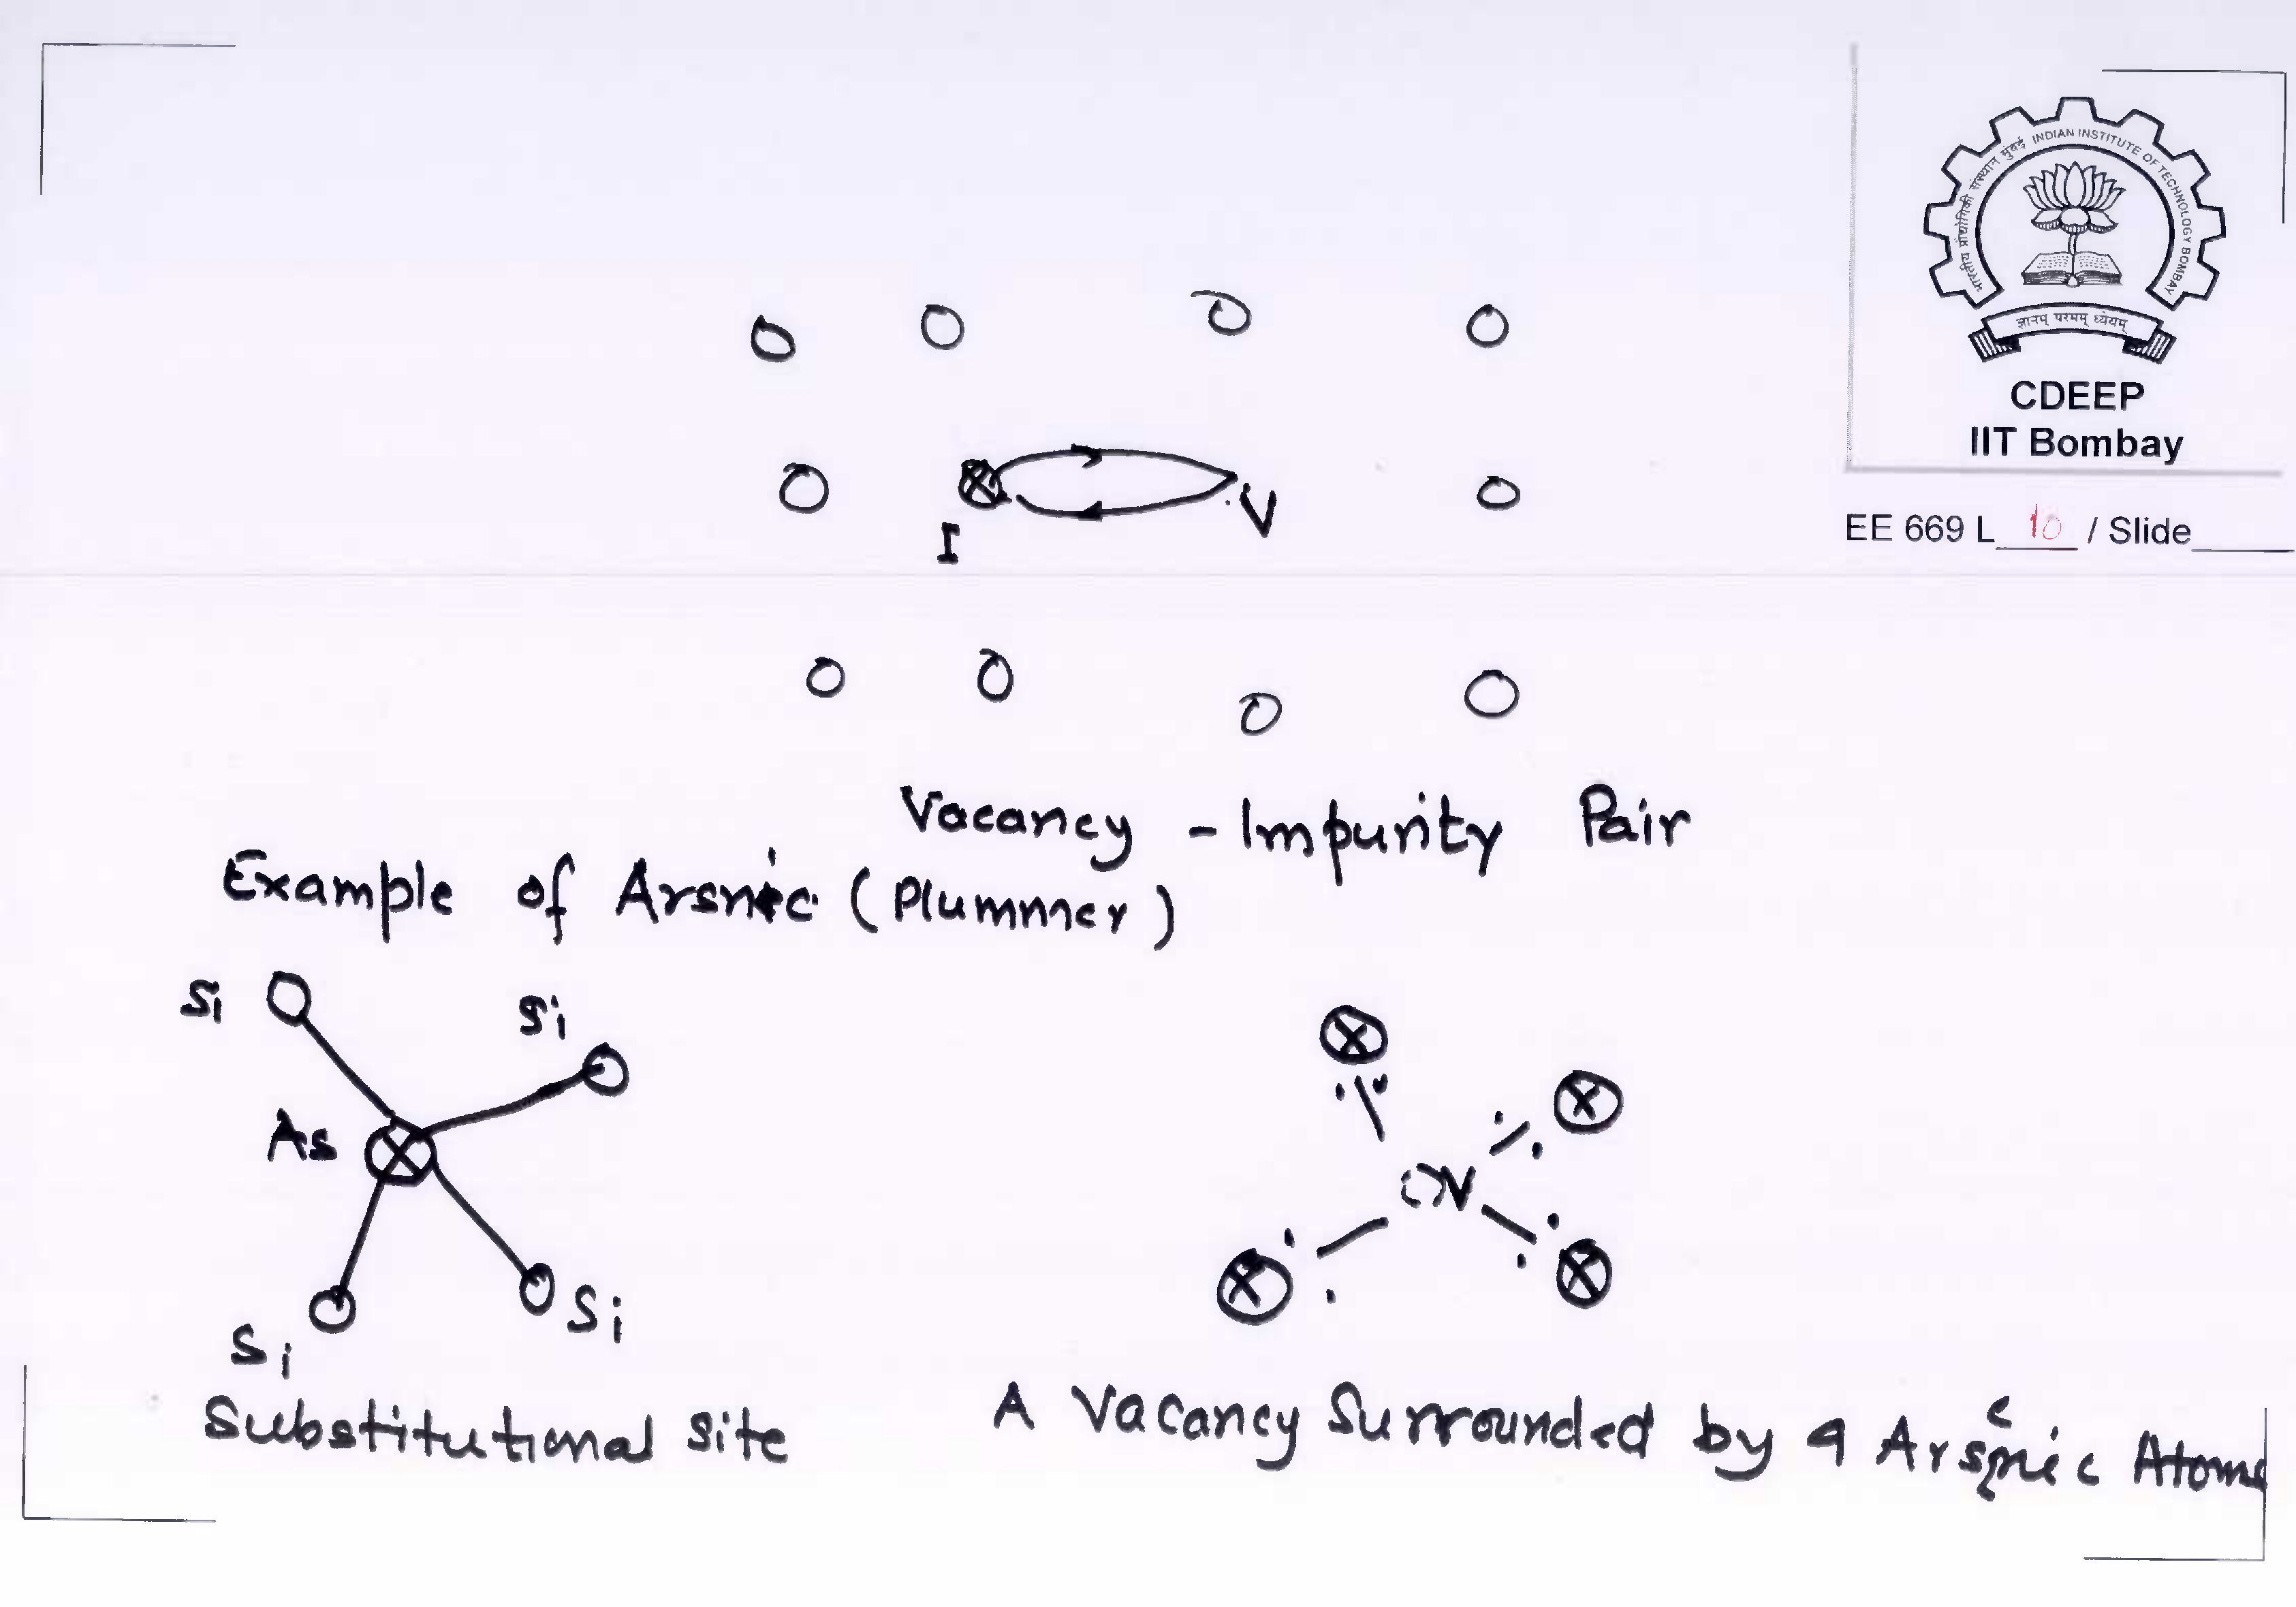 भारतीय प्रौद्योगिकी संस्थान मुंबई INDIAN INSTITUTE OF TECHNOLOGY BOMBAY
ज्ञानम् परमम् ध्येयम्
CDEEP
IIT Bombay
EE 669 L 10 / Slide
I V
Vacancy - Impurity Pair
Example of Arsnic (Plummer)
Si Si
As
Si Si
V
Substitutional Site
A Vacancy Surrounded by 4 Arsenic Atoms